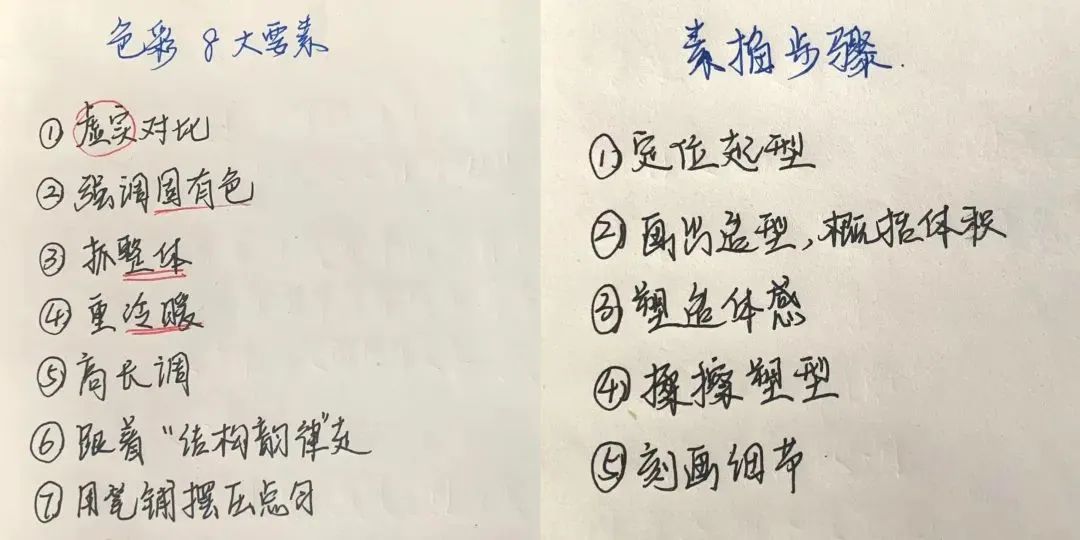 色彩8大要素
①虚实对比
②强调固有色
③抓整体
④重冷暖
⑤高长调
⑥跟着“结构韵律”走
⑦用笔铺摆压点勾
素描步骤.
①定位起型
②画出造型,概括体积
③塑造体感
④揉擦塑型
⑤刻画细节